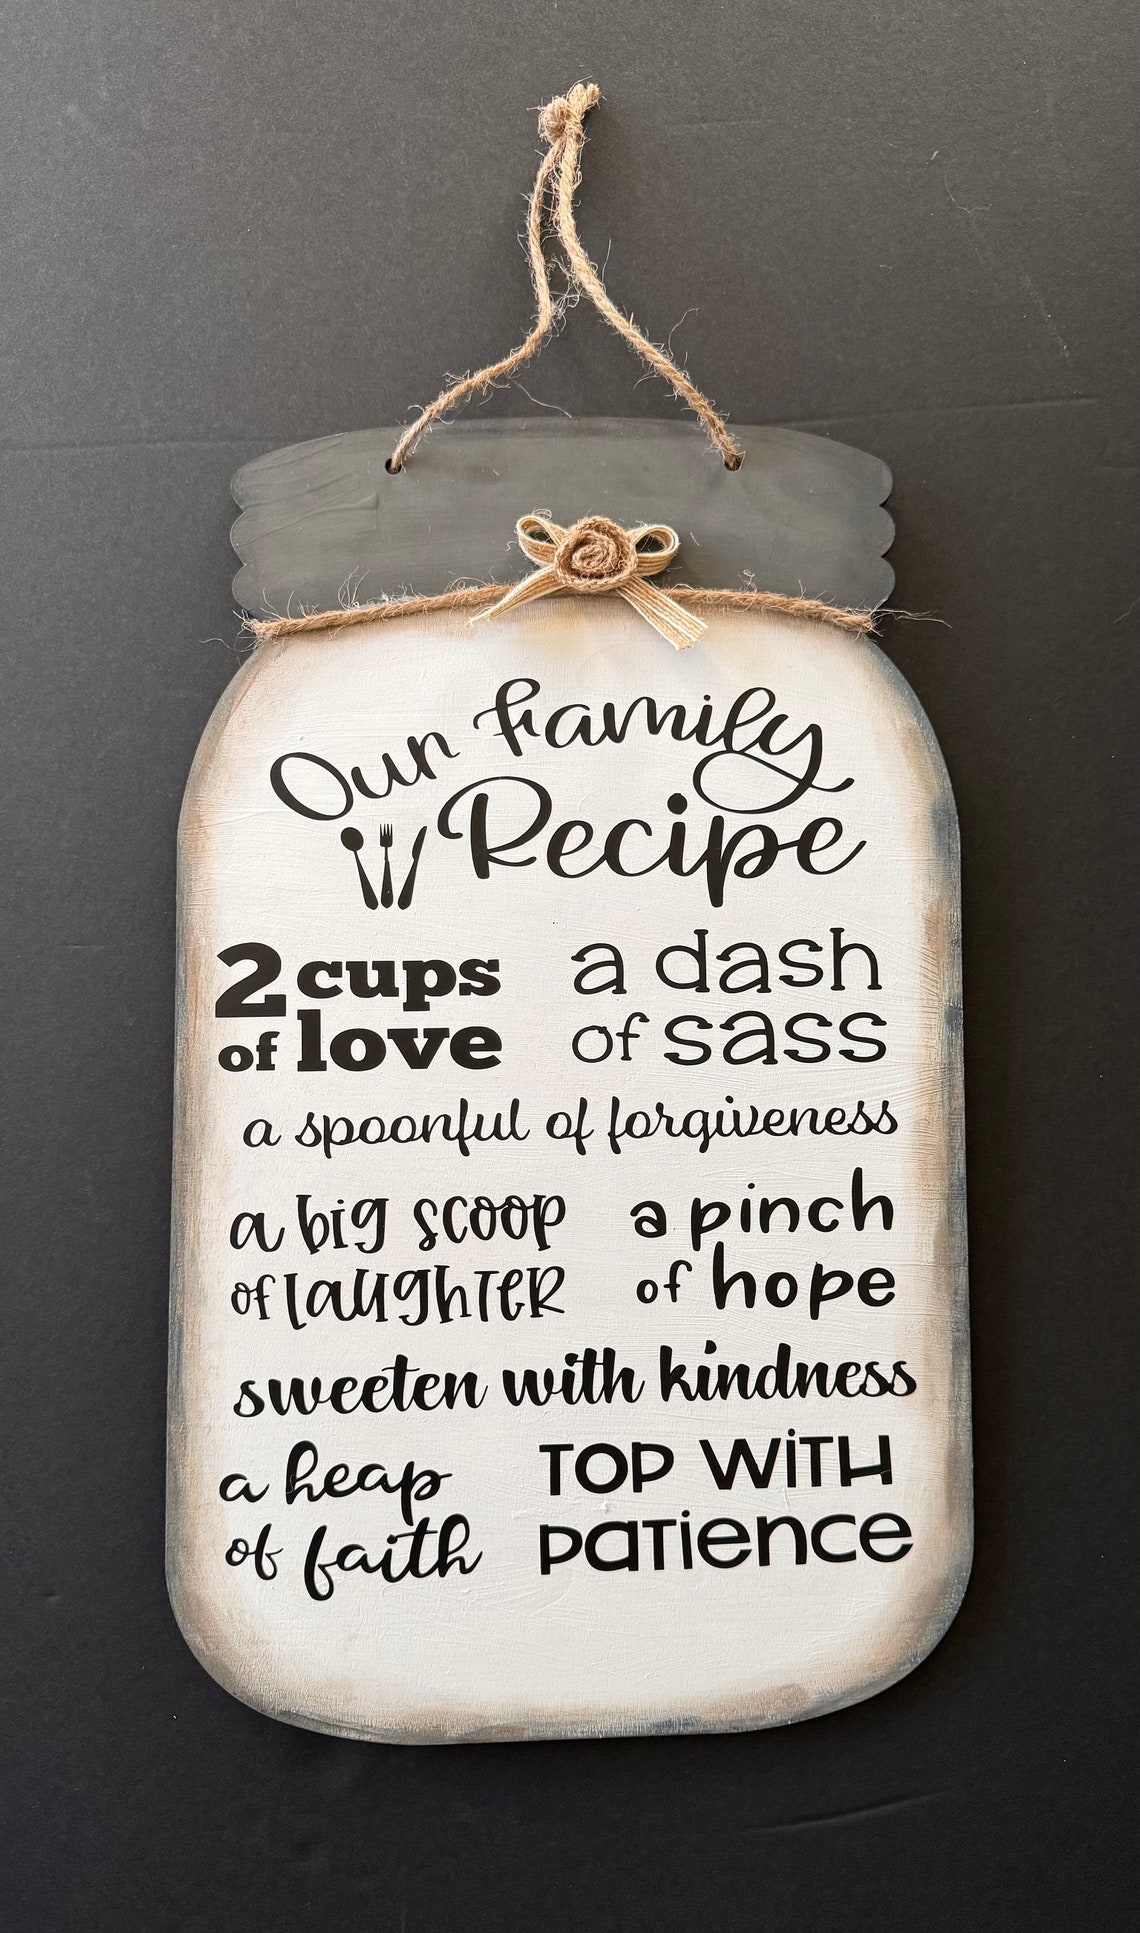 Our Family
Recipe
2 cups
of love
a dash
of sass
a spoonful of forgiveness
a big scoop
of laughter
a pinch
of hope
sweeten with kindness
a heap
of faith
TOP WITH
PATIENCE